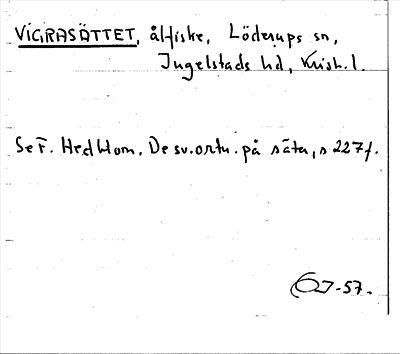 VIGRASÄTTET, ålfiske, Löderups sn,
Ingelstads hd, Krist. l.
Se F. Hedblom. De sv. ortn. på säter, s 227 f.
OJ-57.